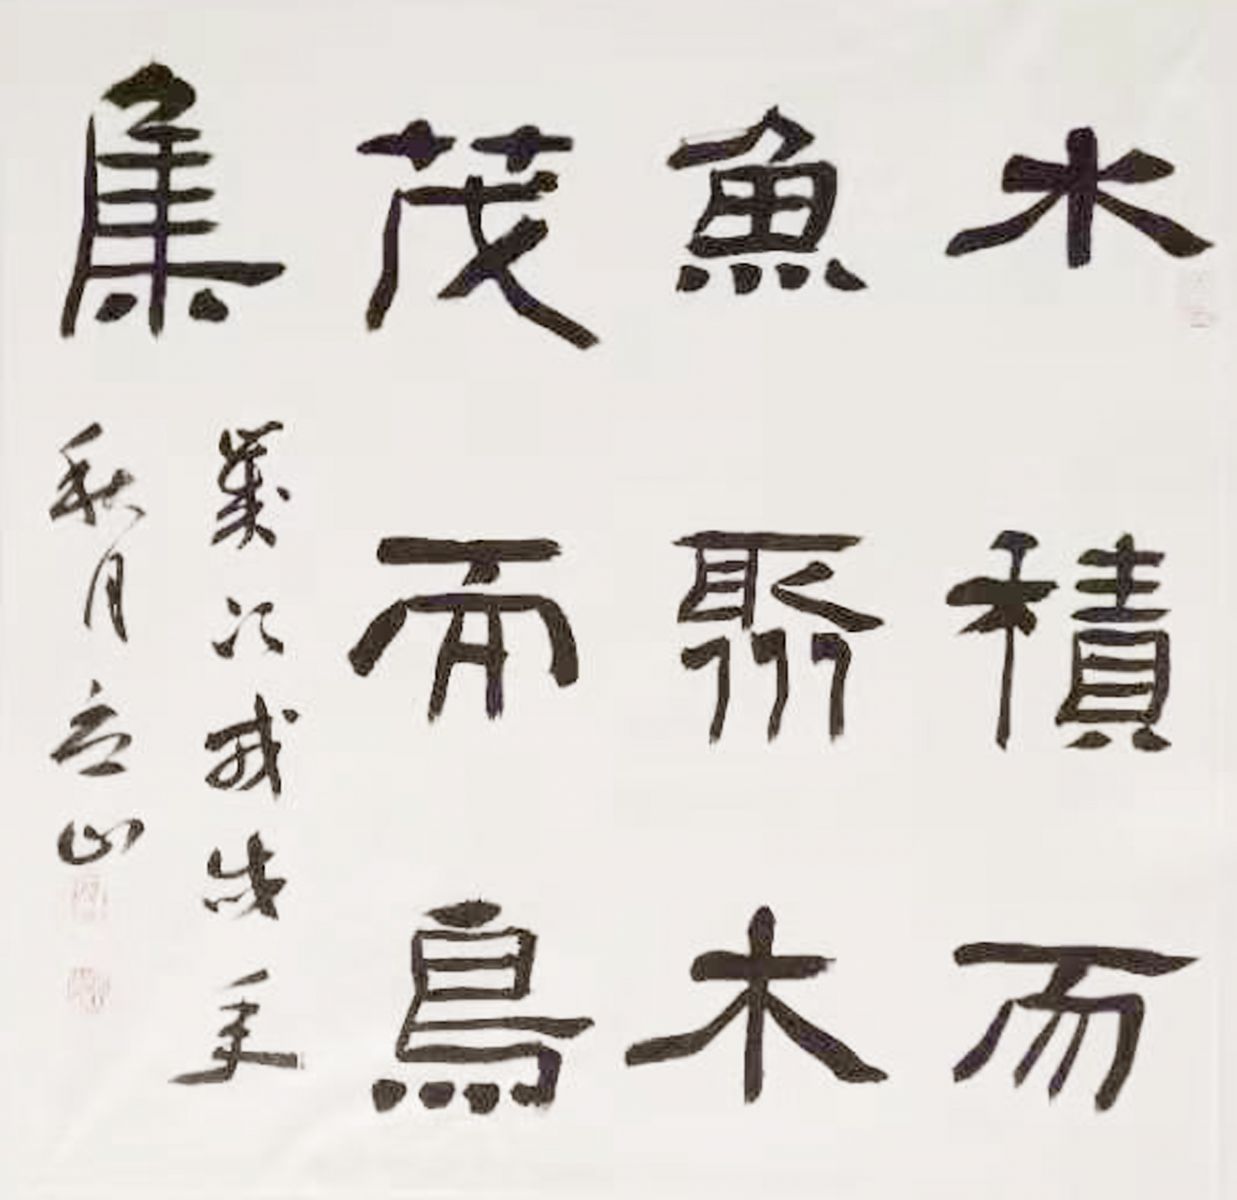 水積而
魚聚木
茂而鳥
集
歲次戊戌年
秋月立山